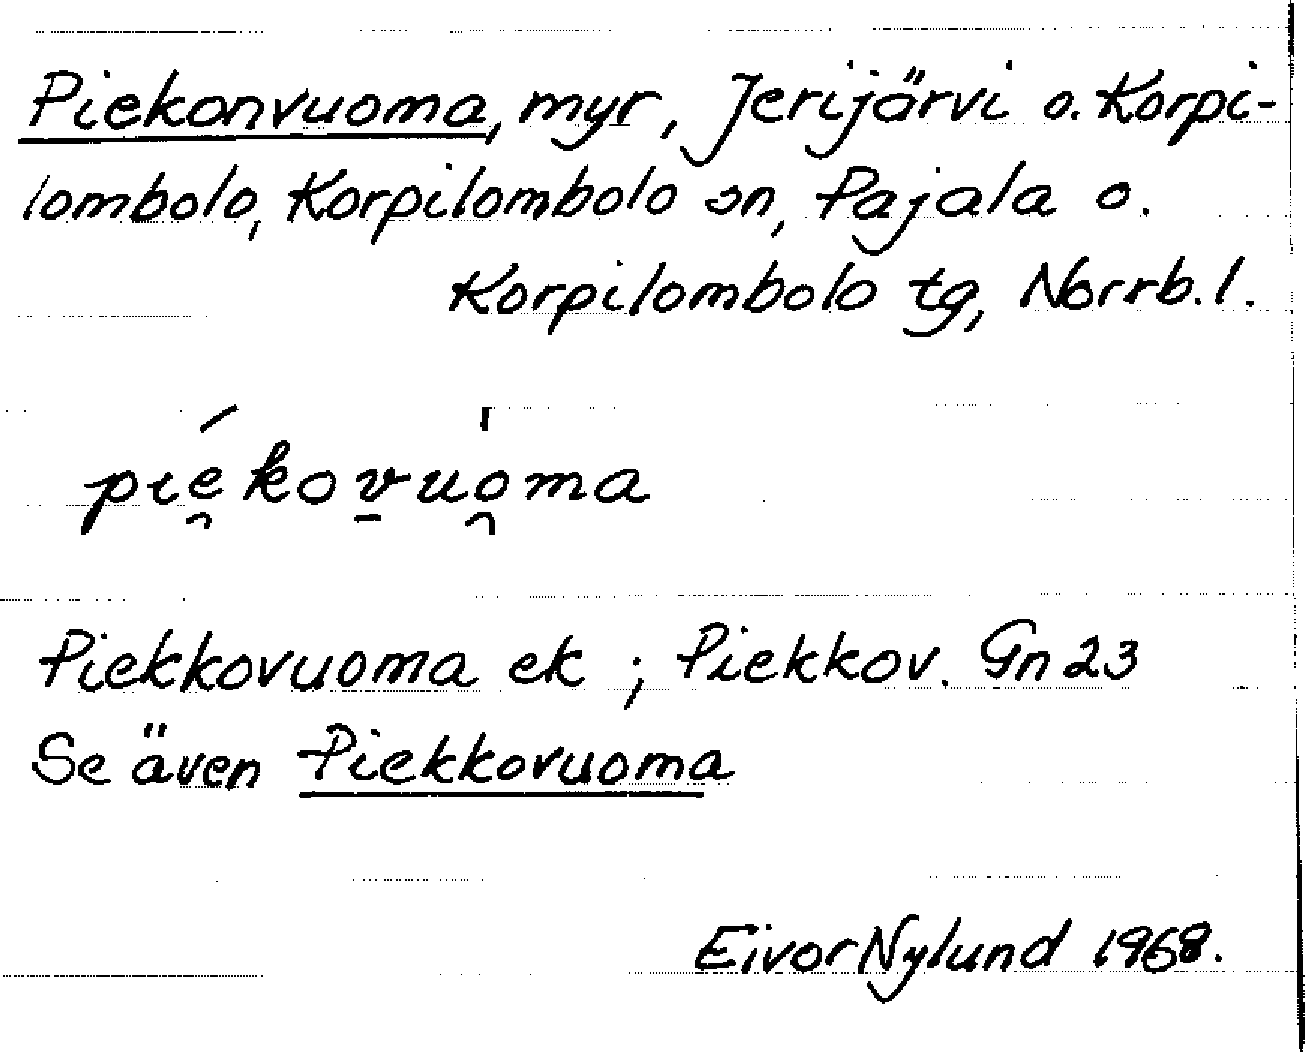 Piekonvuoma, myr, Jerijärvi o. Korpi-
lombolo, Korpilombolo sn, Pajala o.
Korpilombolo tg, Norrb. l.
pıé̯kov̠uo̯̍ma
Piekkovuoma ek ; Piekkov. Gn 23
Se även Piekkovuoma
Eivor Nylund 1968.